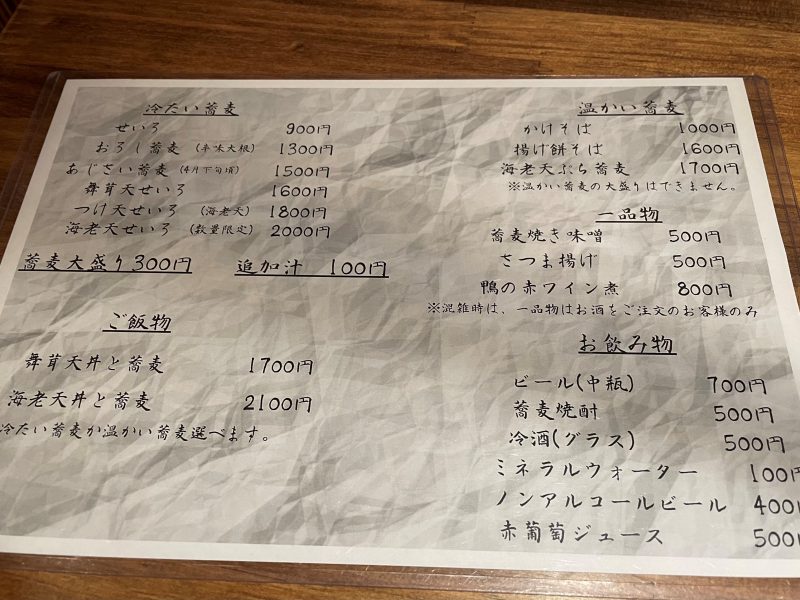 冷たい蕎麦
せいろ 900円
おろし蕎麦 (辛味大根) 1300円
あじさい蕎麦 (4月下旬頃) 1500円
舞茸天せいろ 1600円
つけ天せいろ (海老天) 1800円
海老天せいろ (数量限定) 2000円
蕎麦大盛り300円 追加汁 100円
ご飯物
舞茸天丼と蕎麦 1700円
海老天丼と蕎麦 2100円
冷たい蕎麦か温かい蕎麦選べます。
温かい蕎麦
かけそば 1000円
揚げ餅そば 1600円
海老天ぷら蕎麦 1700円
※温かい蕎麦の大盛りはできません。
一品物
蕎麦焼き味噌 500円
さつま揚げ 500円
鴨の赤ワイン煮 800円
※混雑時は、一品物はお酒をご注文のお客様のみ
お飲み物
ビール(中瓶) 700円
蕎麦焼酎 500円
冷酒(グラス) 500円
ミネラルウォーター 100円
ノンアルコールビール 400円
赤葡萄ジュース 500円